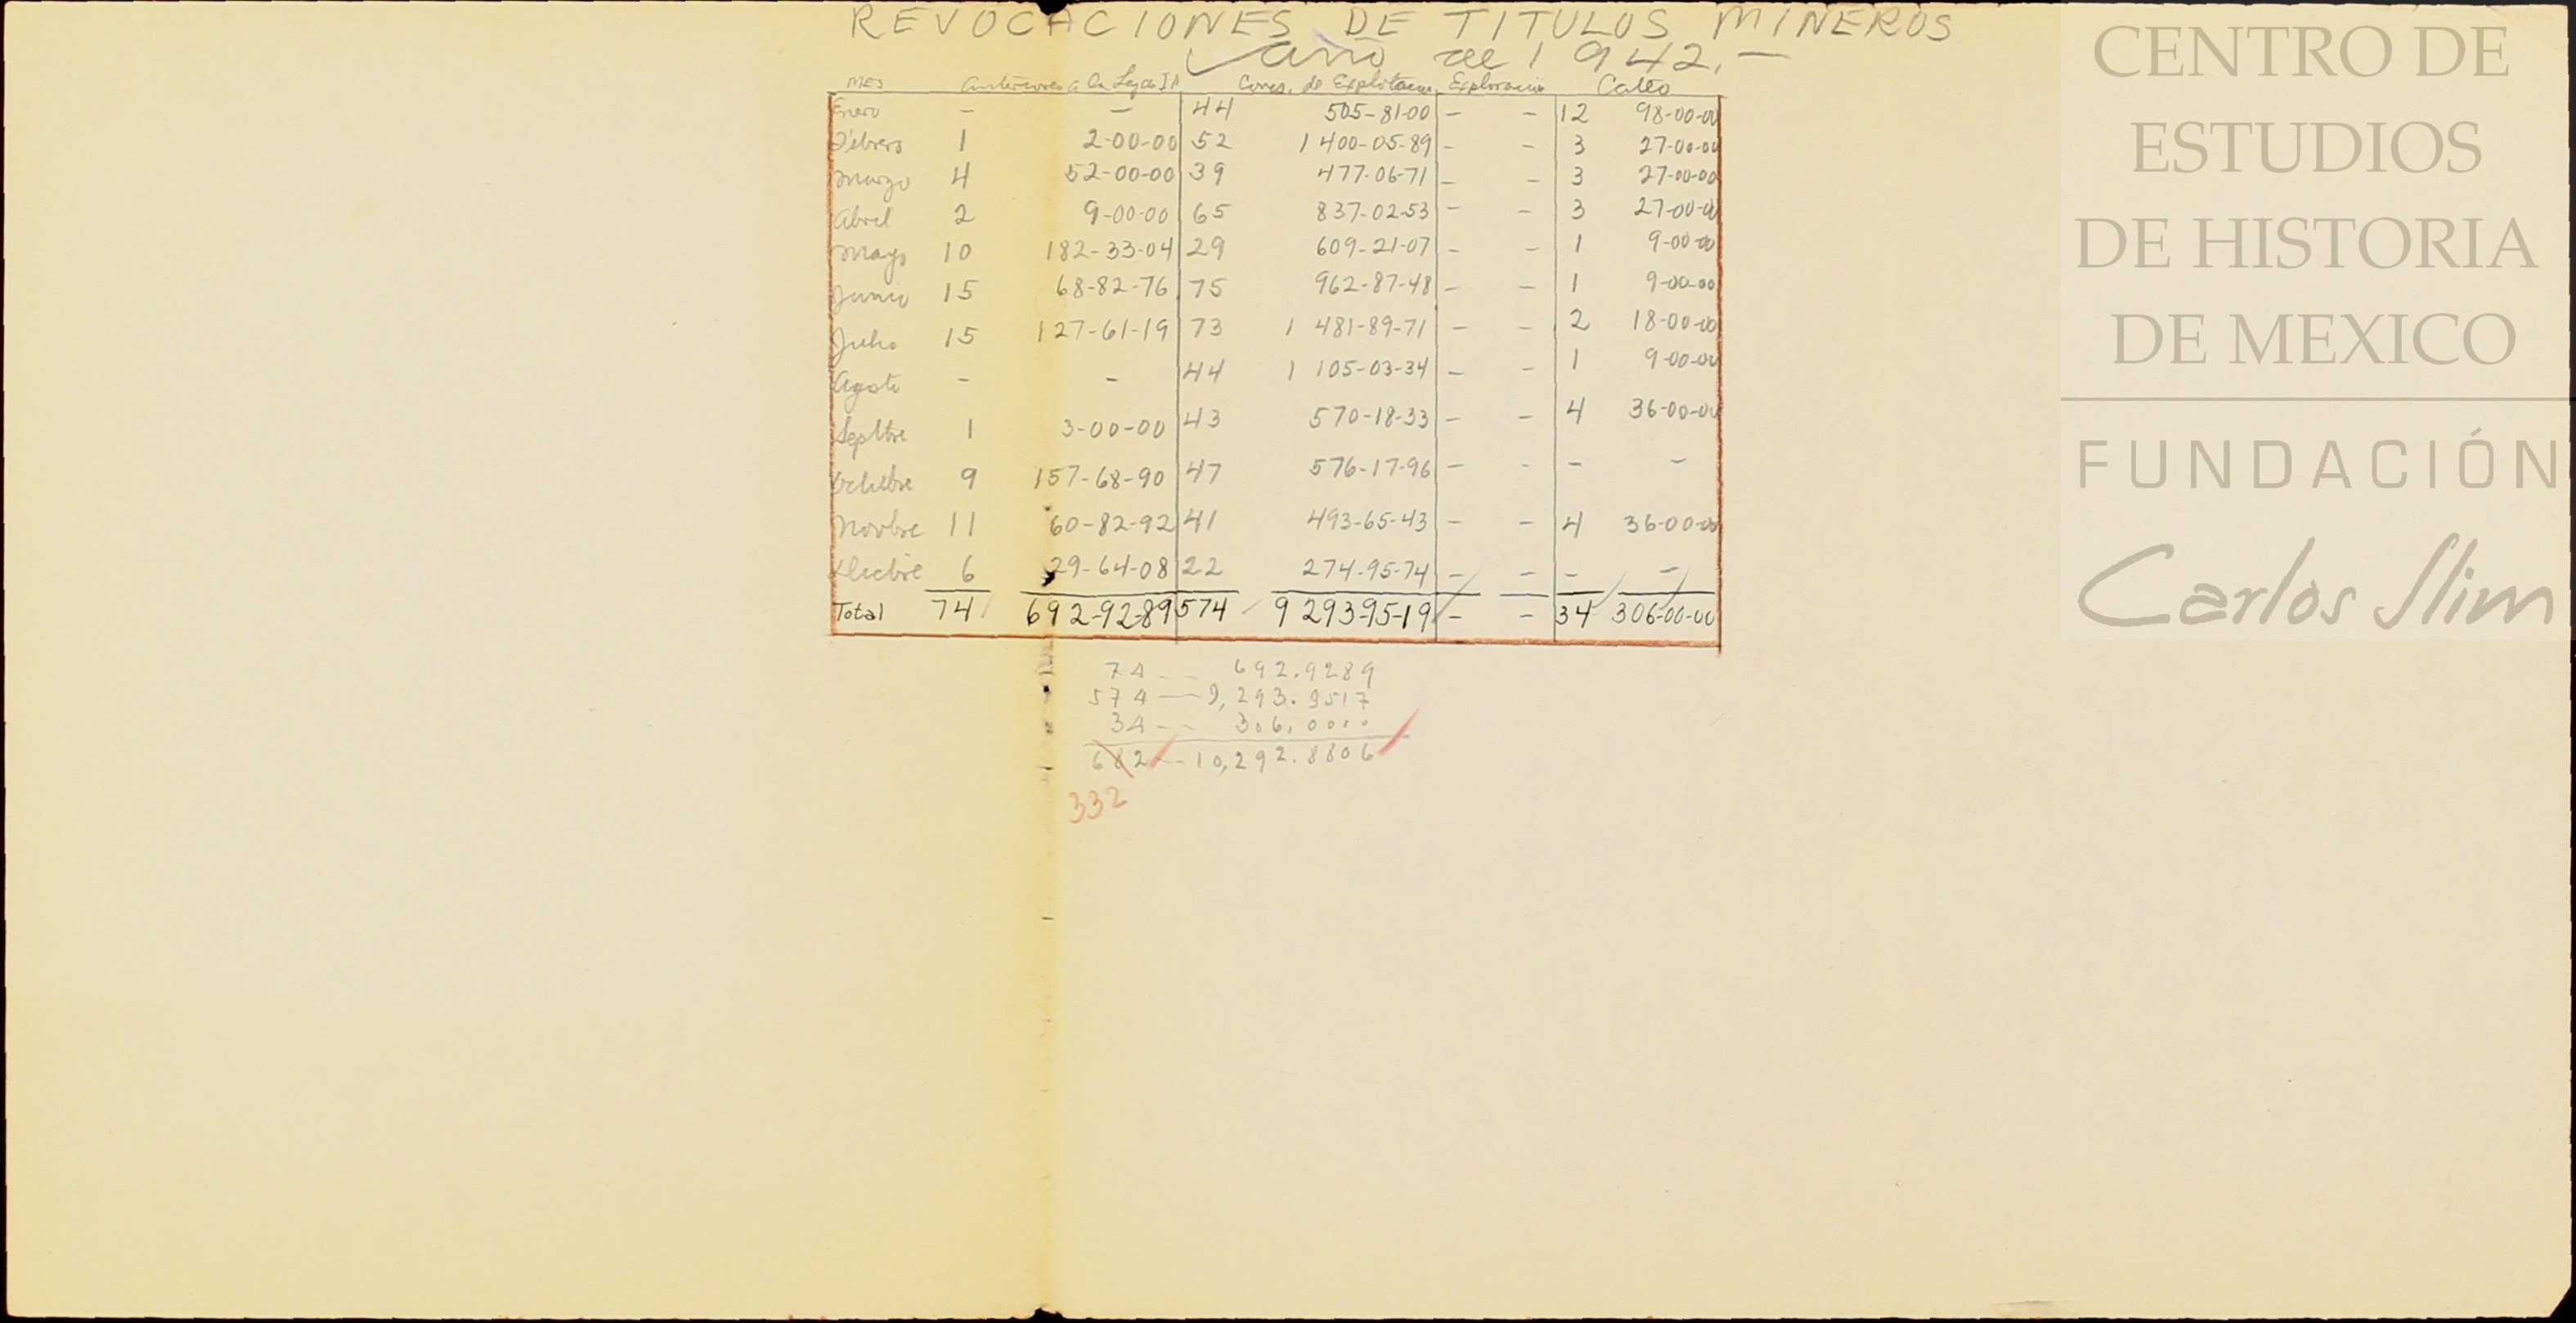 REVOCACIONES DE TITULOS MINEROS
año de 1942.-
MES Anteriores a la Ley de Conces. de Explotacion Exploracion Cateo
Enero - - 44 505-81-00 - - 12 98-00-00
Febrero 1 2-00-00 52 1 400-05-89 - - 3 27-00-00
Marzo 4 52-00-00 39 477-06-71 - - 3 27-00-00
Abril 2 9-00-00 65 837-02-53 - - 3 27-00-00
Mayo 10 182-33-04 29 609-21-07 - - 1 9-00-00
Junio 15 68-82-76 75 962-87-48 - - 1 9-00-00
Julio 15 127-61-19 73 1 481-89-71 - - 2 18-00-00
Agosto - - 44 1 105-03-34 - - 1 9-00-00
Septbre 1 3-00-00 43 570-18-33 - - 4 36-00-00
Octubre 9 157-68-90 47 576-17-96 - - - -
Novbre 11 60-82-92 41 493-65-43 - - 4 36-00-00
Dicbre 6 29-64-08 22 274-95-74 - - - -
Total 74 692-92-89 574 9 293-95-19 - - 34 306-00-00
74 -- 692.9289
574 -- 9,293.9517
34 -- 306.0000
682 -- 10,292.8806
332
CENTRO DE
ESTUDIOS
DE HISTORIA
DE MEXICO
FUNDACIÓN
Carlos Slim